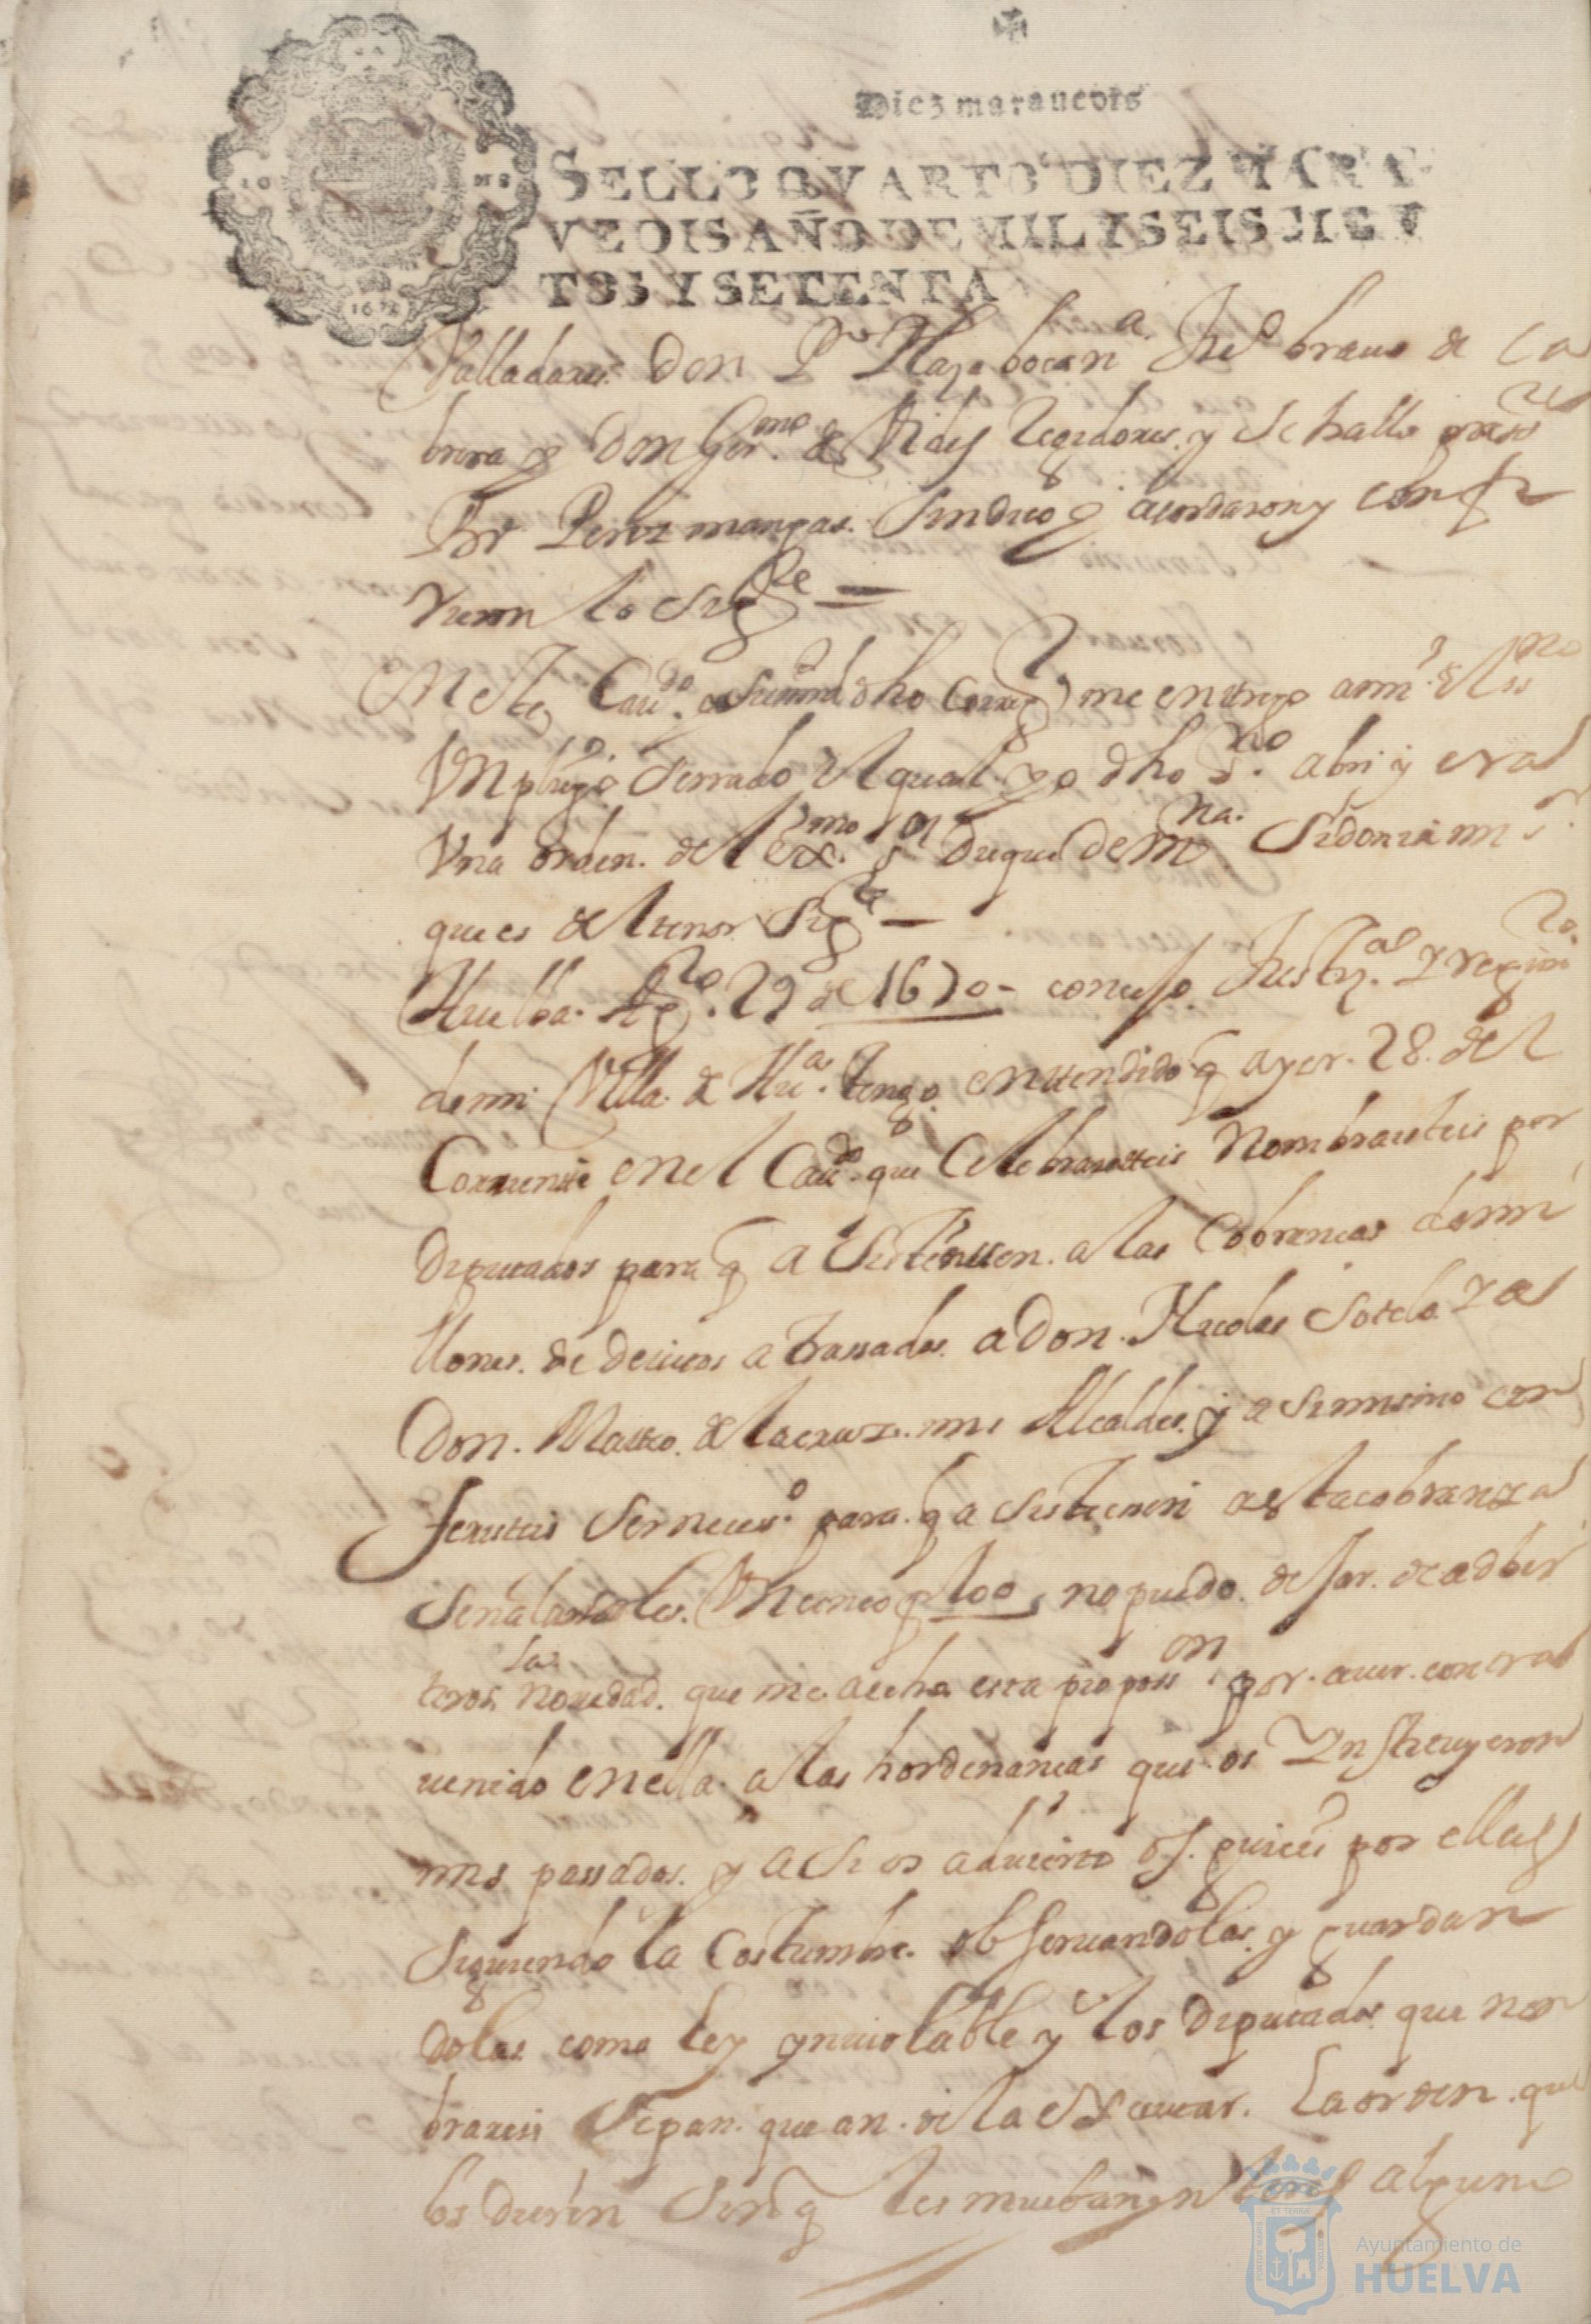 Diez marauedis
SELLO QVARTO DIEZ MARA
VEDIS AÑO DE MIL Y SEISCIEN
TOS Y SETENTA
Valladares Don P.º bocan.ª brauo de Ca
brera y Don Ger.mo de Vides Regidores y se hallo press.te
Perez mangas. Sindico q acordaron y confi
rieron lo sig.te =
En este Cau.do su md dho Correg.r me entrego a mi el ss.no
Vn pliego serrado el qual yo dho s.no abri y era
Vna orden. del ex.mo s.or Duque de m.na Sidonia mi s.r
que es del tenor sig.te —
Huelba. Ag.to 29 de 1670 - consejo Just.ª Y regim.to
de mi Villa de Hu.ª tengo entendido q ayer. 28. del
Corriente en el Cau.do que Celebrasteis Nombrasteis por
Diputados para q asistiessen. a las Cobrancas de mi
llones. de deuitos atrassados a Don. Nicolas Sotelo Y a
Don. Matteo. de la cruz. mis Alcaldes. y asimismo con
feristeis ser neces.º para. q asistiesen a esta cobranza
señalarles. Vn tanto p 100, no puedo. dejar. de adber
tiros la nouedad. que me a echo esta proposs.on por. auer. contra
uenido en ella. a las hordenancas que os Ynstituyeron
mis passados. y asi os aduierto os. guieis por ellas
siguiendo la Costumbre. obseruandolas. y guardan
dolas como ley ynuiolable y los Diputados que non
brareis sepan. que an. de la executar. La orden. que
los dieren sin q les mueba ynteres alguno
Ayuntamiento de
HUELVA